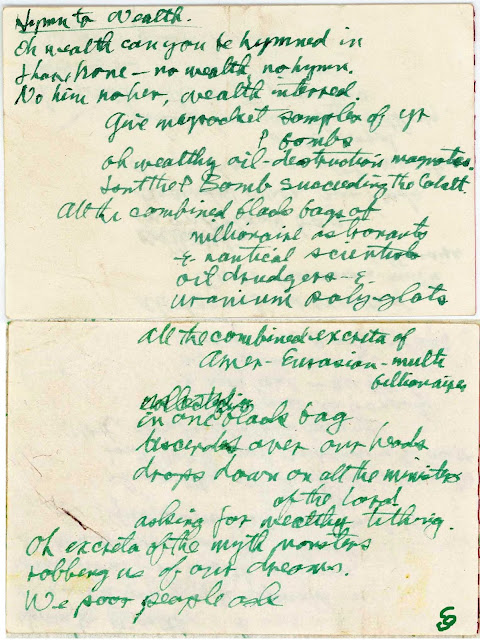 Hymn to Wealth.
Oh wealth can you be hymned in
I have none — no wealth, no hymn.
No him no her, wealth interred
Give my pocket samples of yr
P bombs
oh wealthy oil-destruction magnates.
isn't the P Bomb succeeding the Cobalt.
All the combined black bags of
millionaire astronauts
& nautical scientists
oil drudgers &
uranium polyglots
all the combined excreta of
Amer-Eurasian-multi
billionaires
collected
in one black bag
descends over our heads
drops down on all the ministers
of the Lord
asking for wealthy tithing.
Oh excreta of the myth monsters
robbing us of our dreams.
We poor people ask